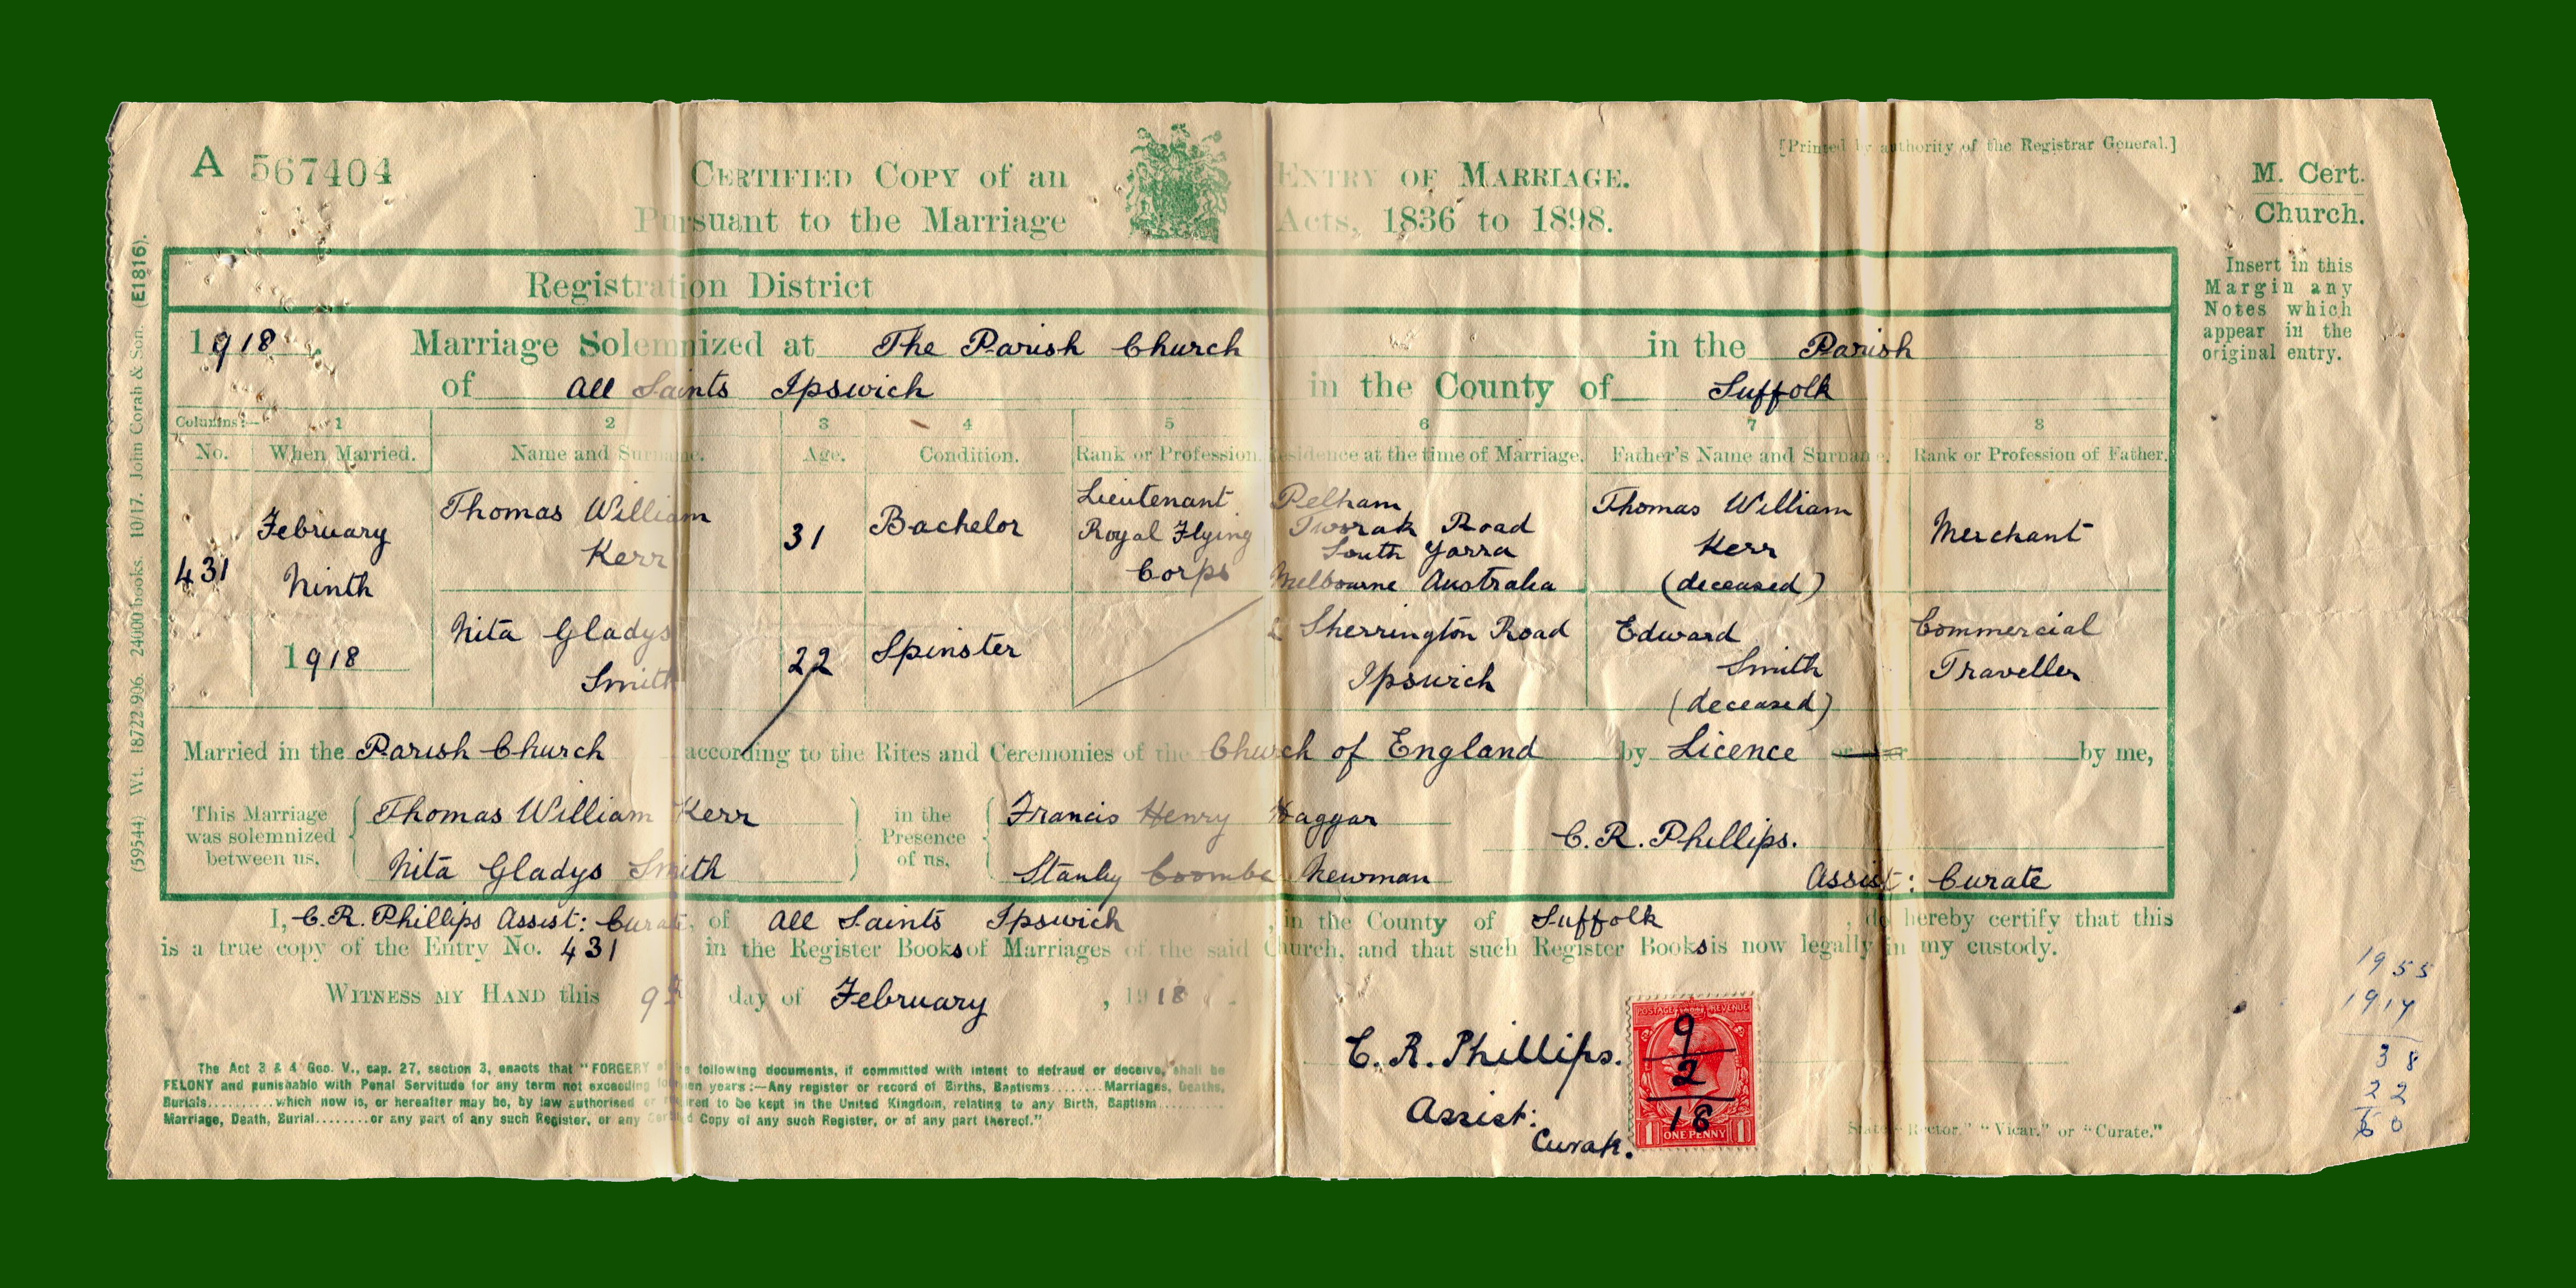 A 567404
CERTIFIED COPY of an ENTRY OF MARRIAGE.
Pursuant to the Marriage Acts, 1836 to 1898.
[Printed by authority of the Registrar General.]
M. Cert.
Church.
Insert in this
Margin any
Notes which
appear in the
original entry.
(59544) Wt. 18722-906. 24000 books. 10/17. John Corah & Son. (E1816).
Registration District
1918. Marriage Solemnized at The Parish Church in the Parish
of All Saints Ipswich in the County of Suffolk
Columns:— 1 2 3 4 5 6 7 8
No. When Married. Name and Surname. Age. Condition. Rank or Profession. Residence at the time of Marriage. Father's Name and Surname. Rank or Profession of Father.
431
February
Ninth
1918
Thomas William
Kerr
31
Bachelor
Lieutenant
Royal Flying
Corps
Pelham
Toorak Road
South Yarra
Melbourne Australia
Thomas William
Kerr
(deceased)
Merchant
Nita Gladys
Smith
22
Spinster
Sherrington Road
Ipswich
Edward
Smith
(deceased)
Commercial
Traveller
Married in the Parish Church according to the Rites and Ceremonies of the Church of England by Licence or by me,
This Marriage
was solemnized
between us,
Thomas William Kerr
Nita Gladys Smith
in the
Presence
of us,
Francis Henry Haggar
Stanley Coombe Newman
C. R. Phillips.
Assist: Curate
I, C. R. Phillips Assist: Curate, of All Saints Ipswich, in the County of Suffolk, do hereby certify that this
is a true copy of the Entry No. 431 in the Register Books of Marriages of the said Church, and that such Register Books is now legally in my custody.
WITNESS MY HAND this 9th day of February, 1918.
The Act 3 & 4 Geo. V., cap. 27, section 3, enacts that "FORGERY of the following documents, if committed with intent to defraud or deceive, shall be
FELONY and punishable with Penal Servitude for any term not exceeding fourteen years:—Any register or record of Births, Baptisms........Marriages, Deaths,
Burials..........which now is, or hereafter may be, by law authorised or required to be kept in the United Kingdom, relating to any Birth, Baptism..........
Marriage, Death, Burial........or any part of any such Register, or any Certified Copy of any such Register, or of any part thereof."
C. R. Phillips.
Assist:
Curate.
POSTAGE REVENUE
9
2
18
1 ONE PENNY 1
State "Rector," "Vicar," or "Curate."
1955
1917
38
22
60